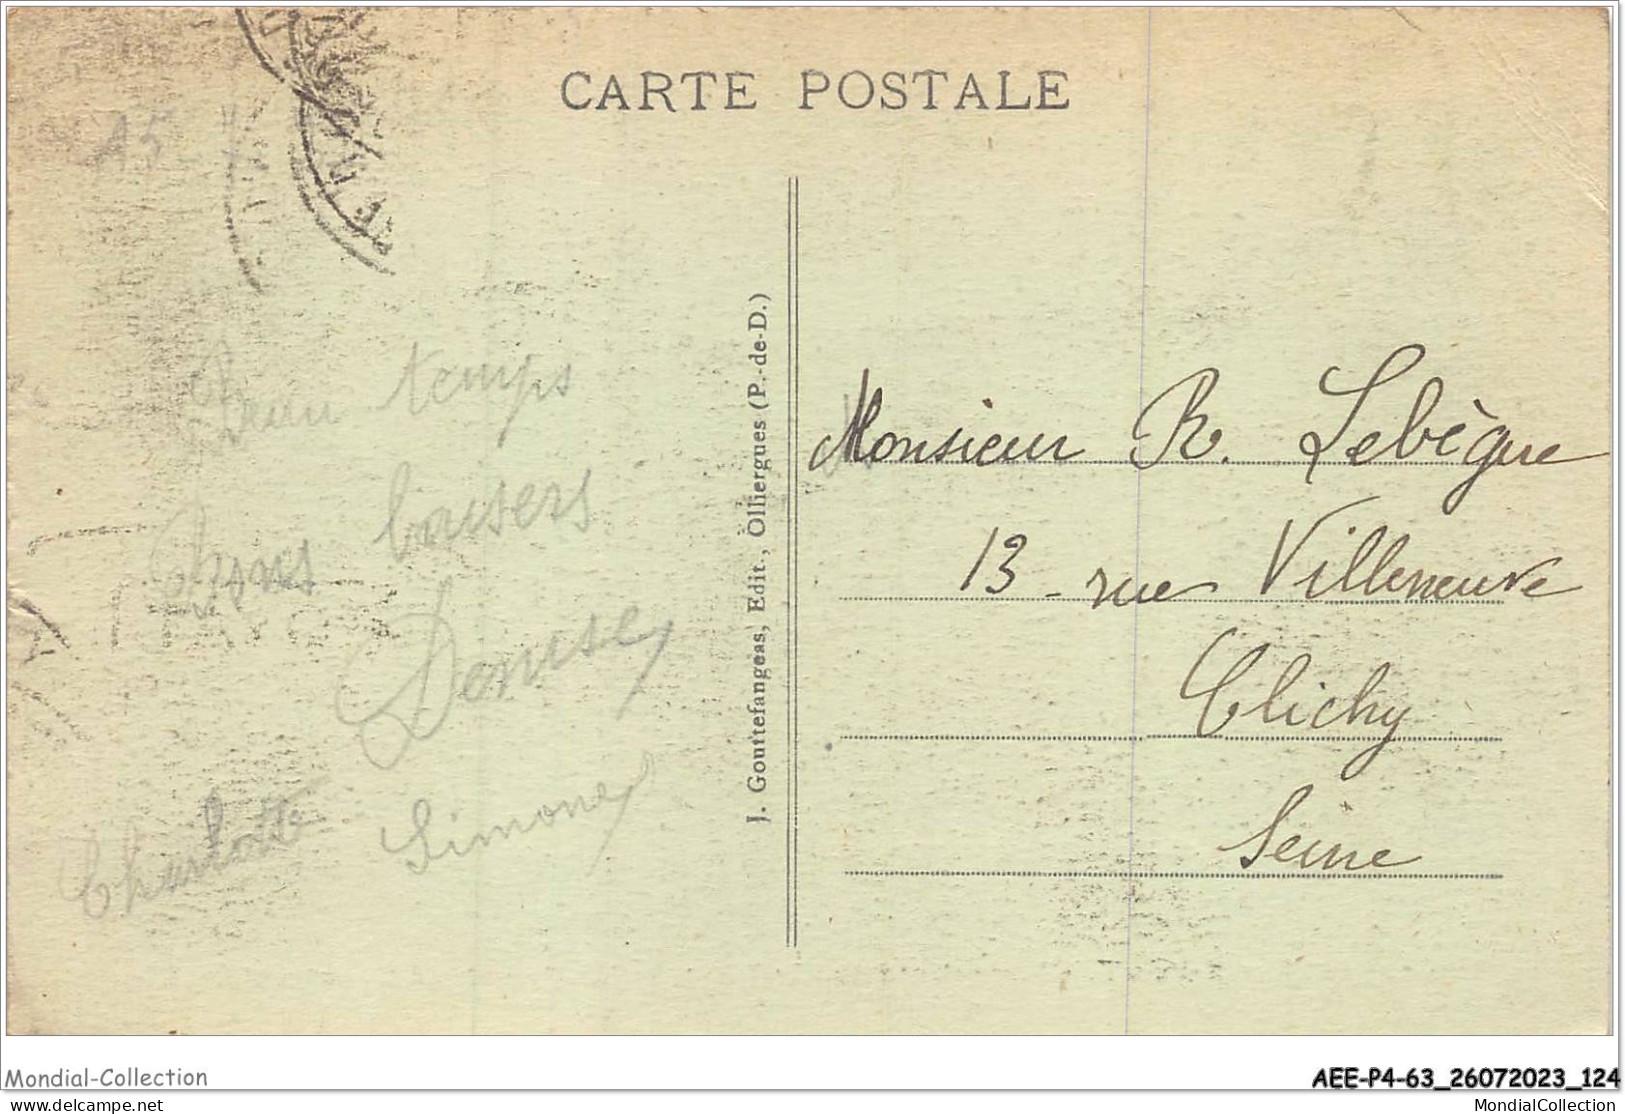 CARTE POSTALE
A5
Beau temps
Bons baisers
Denise
Charlotte
Simone
J. Gouttefangeas, Edit., Olliergues (P.-de-D.)
Monsieur R. Lebègue
13 - rue Villeneuve
Clichy
Seine
Mondial-Collection
AEE-P4-63_26072023_124
www.delcampe.net
MondialCollection